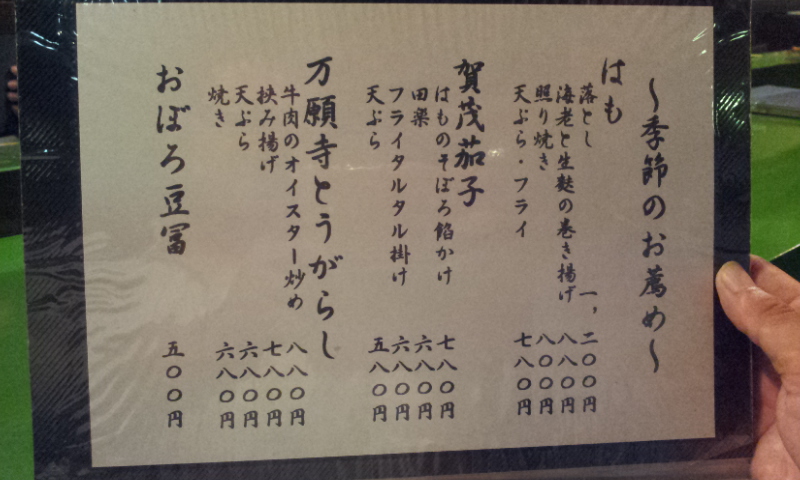 〜季節のお薦め〜
はも
落とし 一,二〇〇円
海老と生麩の巻き揚げ 八八〇円
照り焼き 八〇〇円
天ぷら・フライ 七八〇円
賀茂茄子
はものそぼろ餡かけ 七八〇円
田楽 六八〇円
フライタルタル掛け 六八〇円
天ぷら 五八〇円
万願寺とうがらし
牛肉のオイスター炒め 八八〇円
挟み揚げ 七八〇円
天ぷら 六八〇円
焼き 六八〇円
おぼろ豆冨 五〇〇円